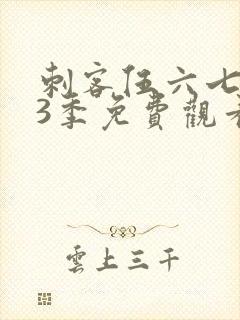 刺客伍六七
3季免費觀看
雲上三千